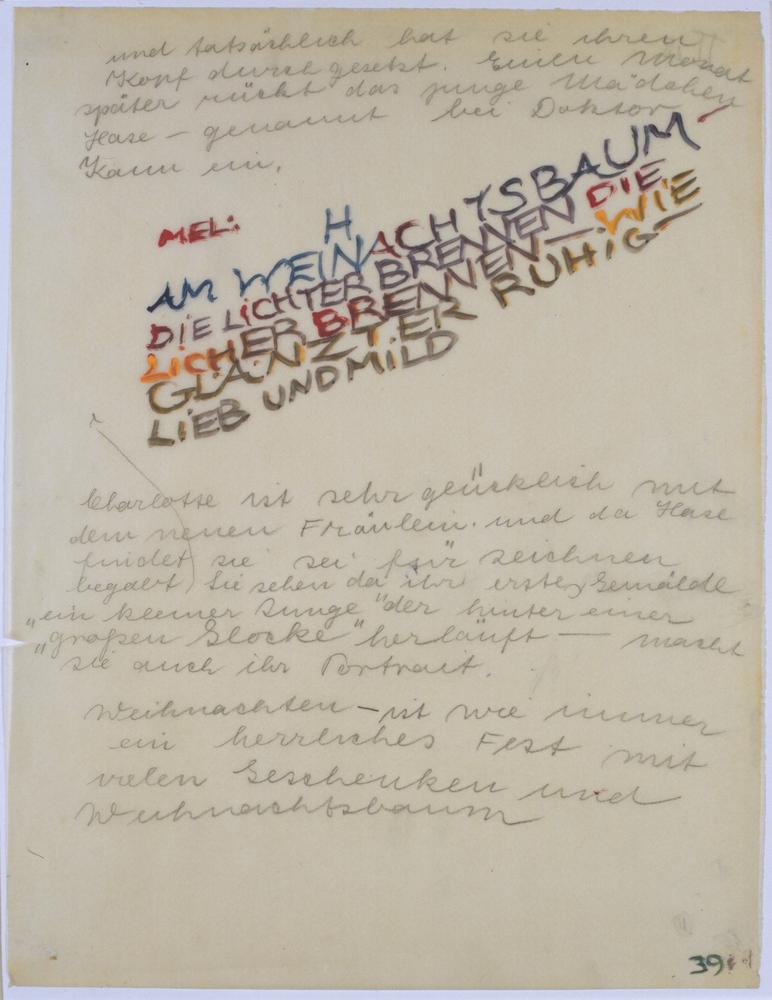 und tatsächlich hat sie ihren
Kopf durchgesetzt. Einen Monat
später rückt das junge Mädchen
Hase — genannt bei Doktor
Kann ein.
MEL:
H
AM WEINACHTSBAUM
DIE LICHTER BRENNEN DIE
LICHER BRENNEN — WIE
GLÄNZT ER RUHIG —
LIEB UND MILD
Charlotte ist sehr glücklich mit
dem neuen Fräulein. und da Hase
findet sie sei für zeichnen
begabt, Sie sehen da ihr erstes Gemälde
"ein kleiner Junge" der hinter einer
"großen Glocke" herläuft — macht
sie auch ihr Portrait.
Weihnachten — ist wie immer
ein herrliches Fest mit
vielen Geschenken und
Weihnachtsbaum
39